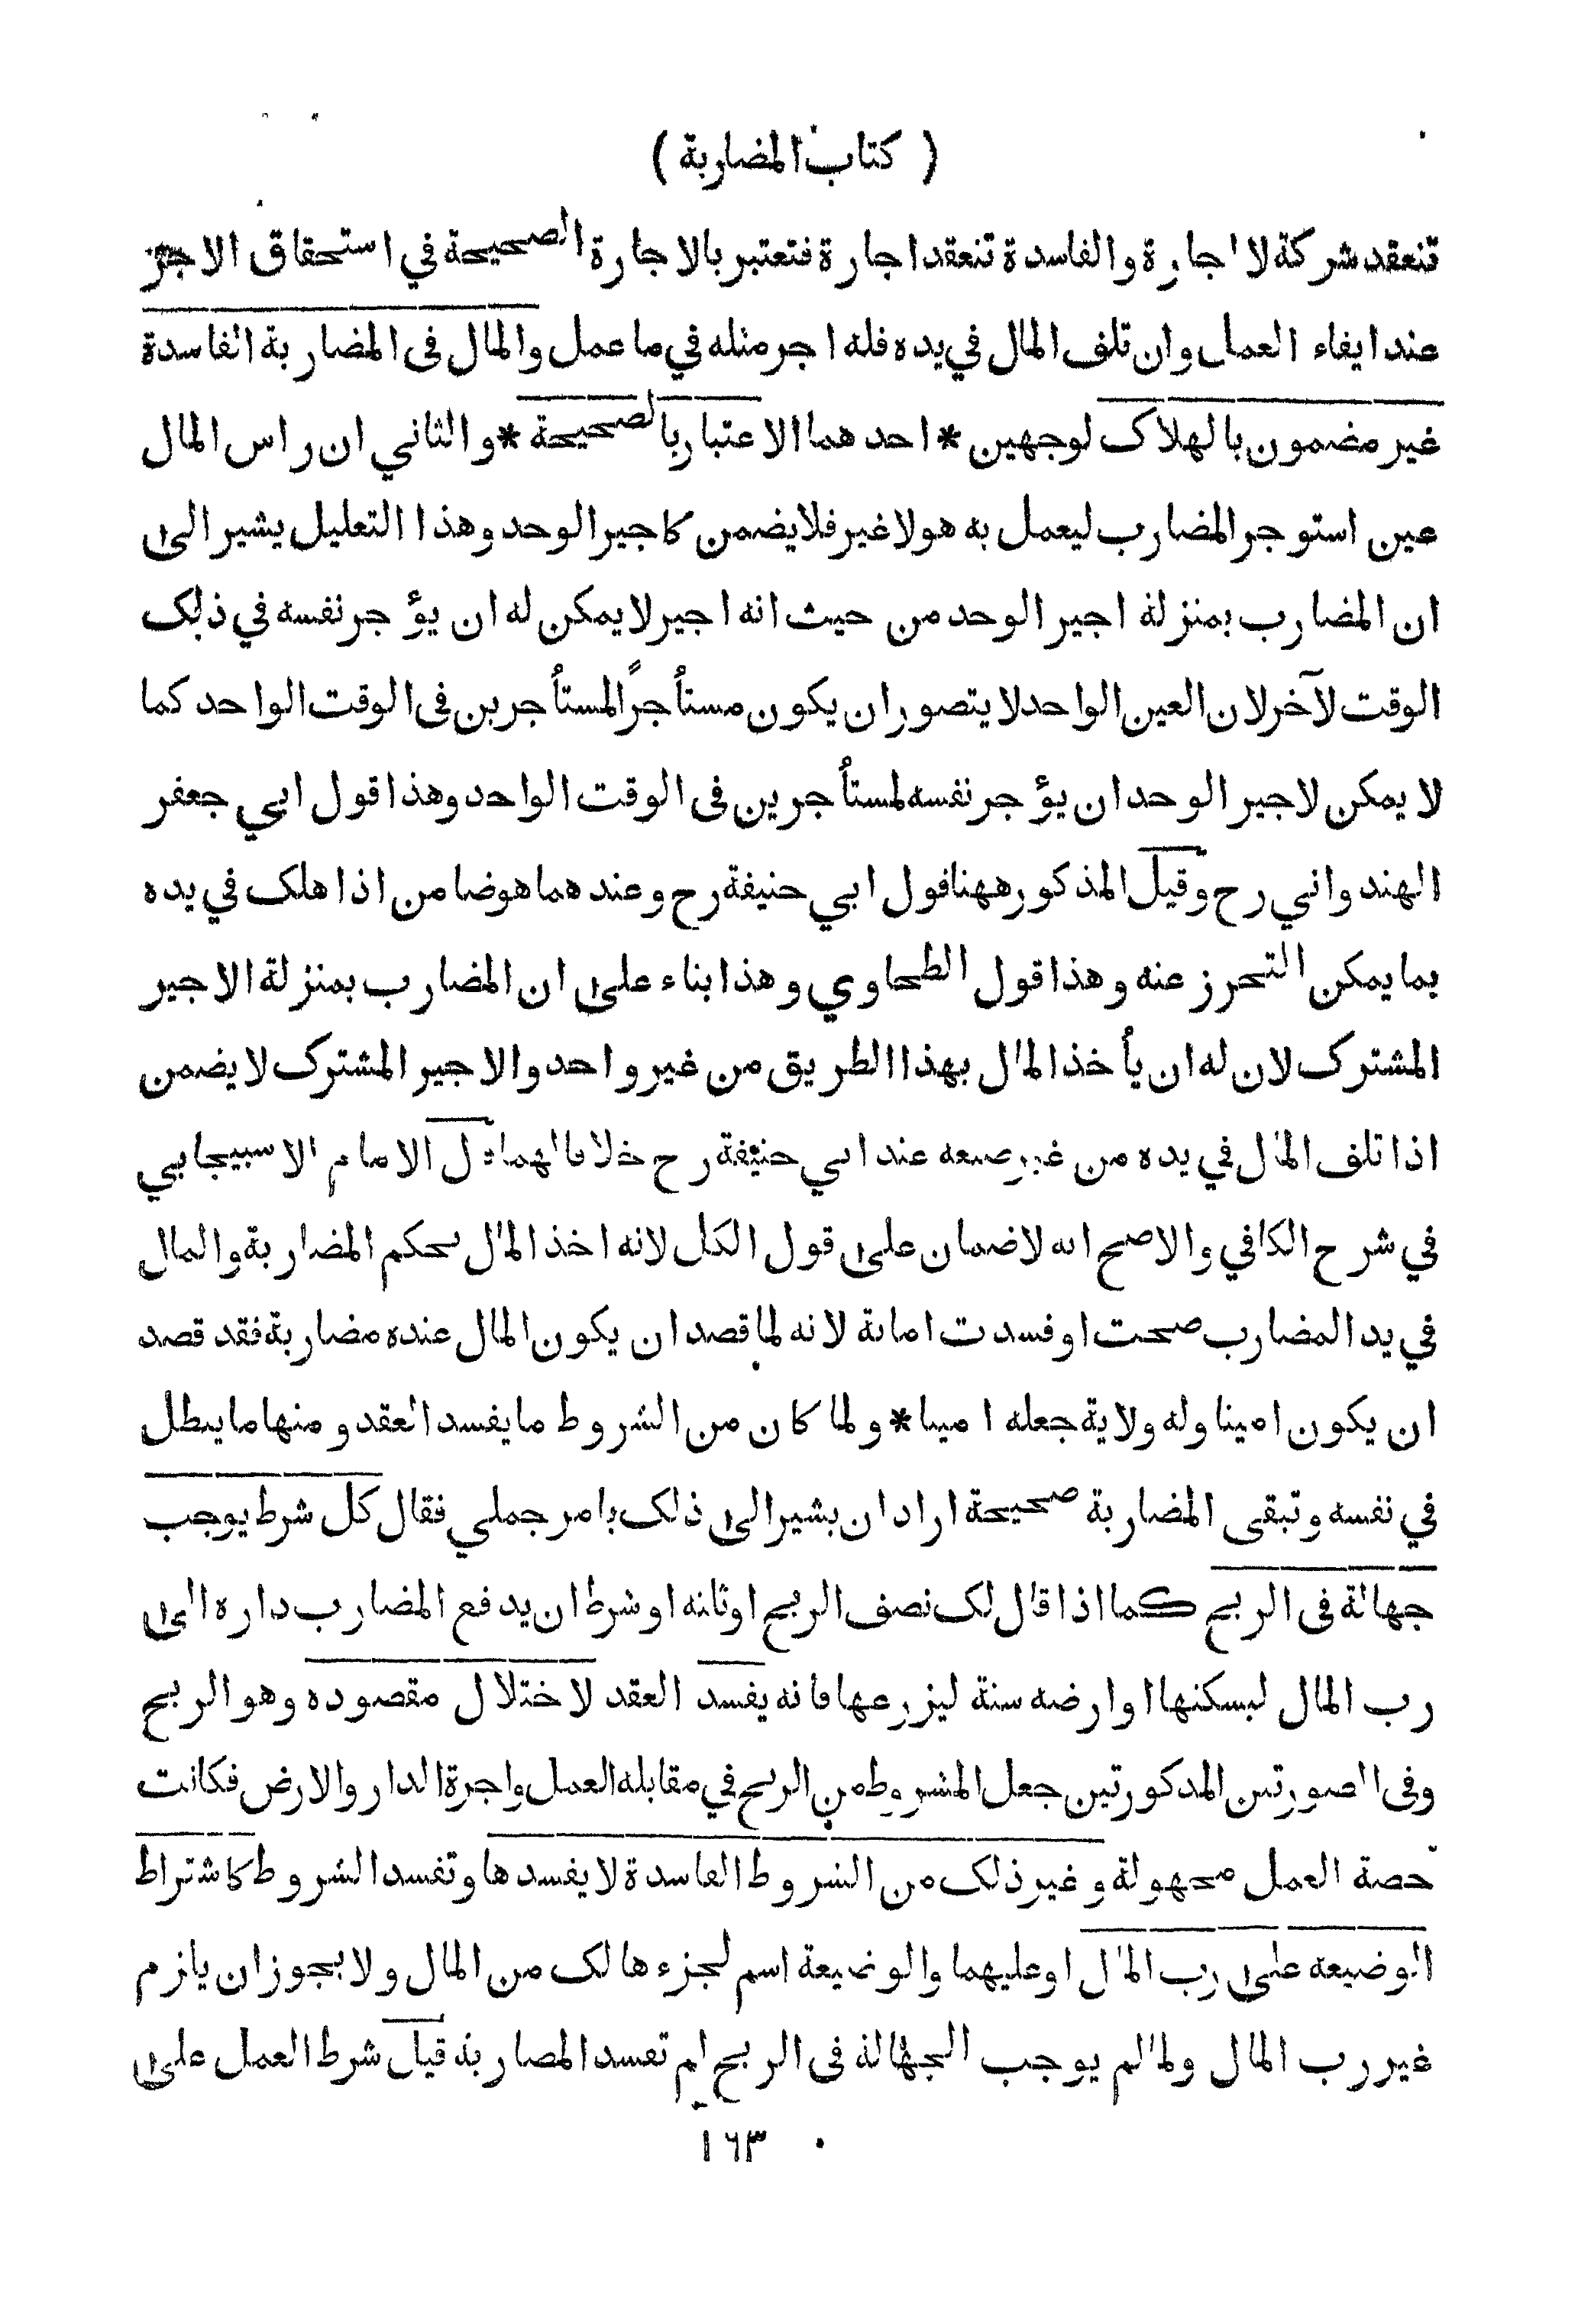 ( كتاب المضاربة )
تنعقد شركة لا اجارة والفاسدة تنعقد اجارة فتعتبر بالاجارة الصحيحة في استحقاق الاجر
عند ايفاء العمل وان تلف المال في يده فله اجر مثله في ما عمل والمال فى المضاربة الفاسدة
غير مضمون بالهلاک لوجهين * احدهما الاعتبار بالصحيحة * والثاني ان راس المال
عين استوجر المضارب ليعمل به هو لا غير فلا يضمن كاجير الوحد وهذا التعليل يشير الى
ان المضارب بمنزلة اجير الوحد من حيث انه اجير لا يمكن له ان يؤجر نفسه في ذلک
الوقت لآخر لان العين الواحد لا يتصور ان يكون مستأجرًا لمستأجرين فى الوقت الواحد كما
لا يمكن لاجير الوحد ان يؤجر نفسه لمستأجرين فى الوقت الواحد وهذا قول ابي جعفر
الهندواني رح وقيل المذكور ههنا قول ابي حنيفة رح وعندهما هو ضامن اذا هلک في يده
بما يمكن التحرز عنه وهذا قول الطحاوي وهذا بناء على ان المضارب بمنزلة الاجير
المشترک لان له ان يأخذ المال بهذا الطريق من غير واحد والاجير المشترک لا يضمن
اذا تلف المال في يده من غير صنعه عند ابي حنيفة رح خلافا لهما قال الامام الاسبيجابي
في شرح الكافي والاصح انه لا ضمان على قول الكل لانه اخذ المال بحكم المضاربة والمال
في يد المضارب صحت او فسدت امانة لانه لما قصد ان يكون المال عنده مضاربة فقد قصد
ان يكون امينا وله ولاية جعله امينا * ولما كان من الشروط ما يفسد العقد ومنها ما يبطل
في نفسه وتبقى المضاربة صحيحة اراد ان يشير الى ذلک بامر جملي فقال كل شرط يوجب
جهالة فى الربح كما اذا قال لک نصف الربح او ثلثه او شرط ان يدفع المضارب داره الى
رب المال ليسكنها او ارضه سنة ليزرعها فانه يفسد العقد لاختلال مقصوده وهو الربح
وفى الصورتين المذكورتين جعل المشروط من الربح في مقابلة العمل واجرة الدار والارض فكانت
حصة العمل مجهولة وغير ذلک من الشروط الفاسدة لا يفسدها وتفسد الشروط كاشتراط
الوضيعة على رب المال او عليهما والوضيعة اسم لجزء هالک من المال ولا يجوز ان يلزم
غير رب المال ولما لم يوجب الجهالة فى الربح لم تفسد المضاربة قيل شرط العمل على
١٦٣